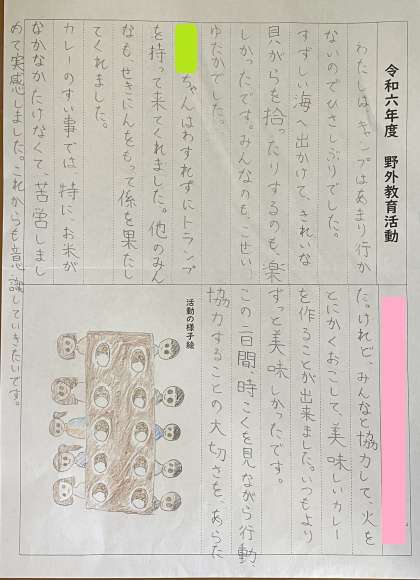 令和六年度　野外教育活動
わたしは、キャンプはあまり行か
ないのでひさしぶりでした。
すずしい海へ出かけて、きれいな
貝がらを拾ったりするのも、楽
しかったです。みんなのも、こせい
ゆたかでした。
ちゃんはわすれずにトランプ
を持って来てくれました。他のみん
なも、せきにんをもって係を果たし
てくれました。
カレーのすい事では、特に、お米が
なかなかたけなくて、苦労しまし
た。けれど、みんなと協力して、火を
とにかくおこして、美味しいカレー
を作ることが出来ました。いつもより
ずっと美味しかったです。
この二日間、時こくを見ながら行動
協力することの大切さを、あらた
めて実感しました。これからも意識していきたいです。
活動の様子絵